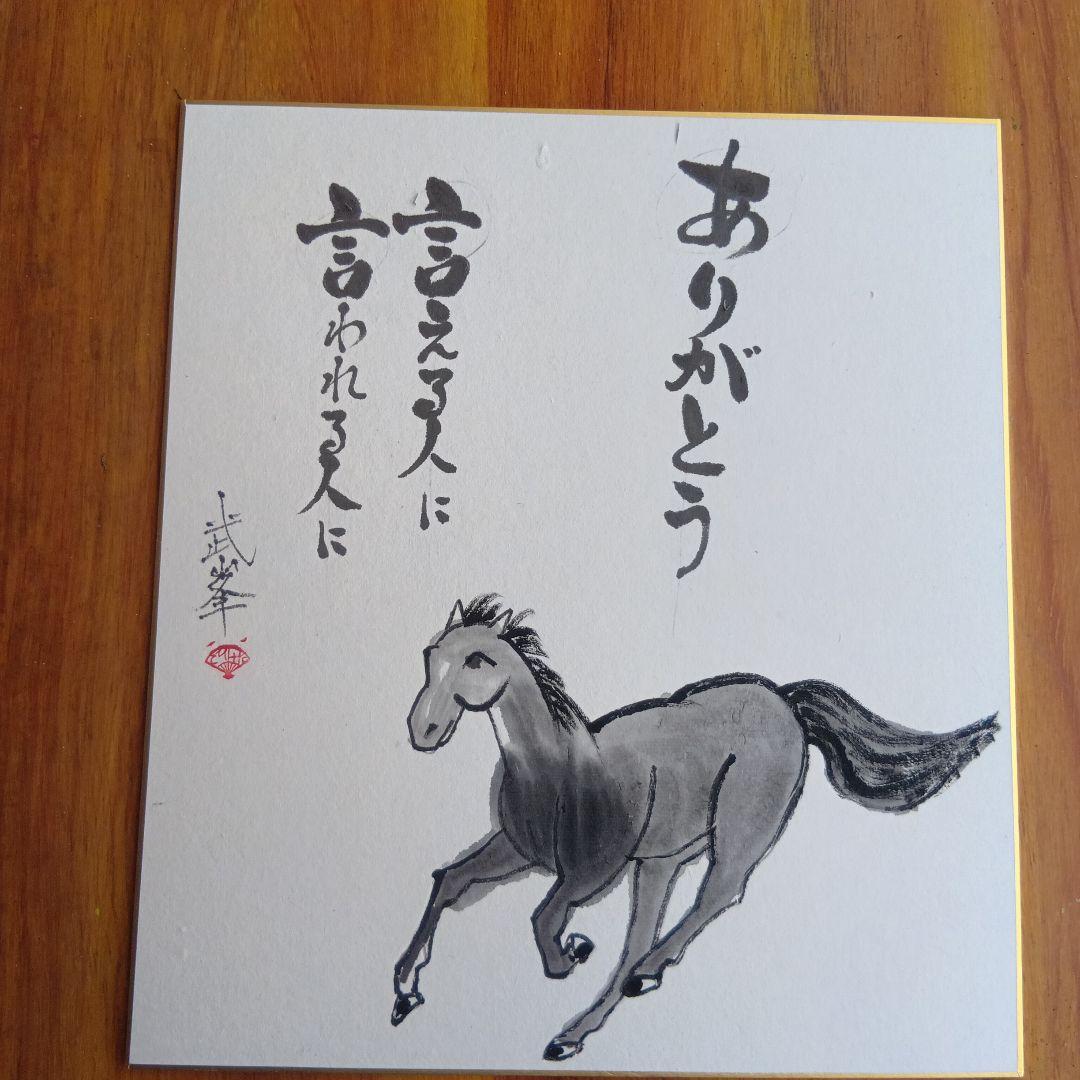 ありがとう
言える人に
言われる人に
武峯